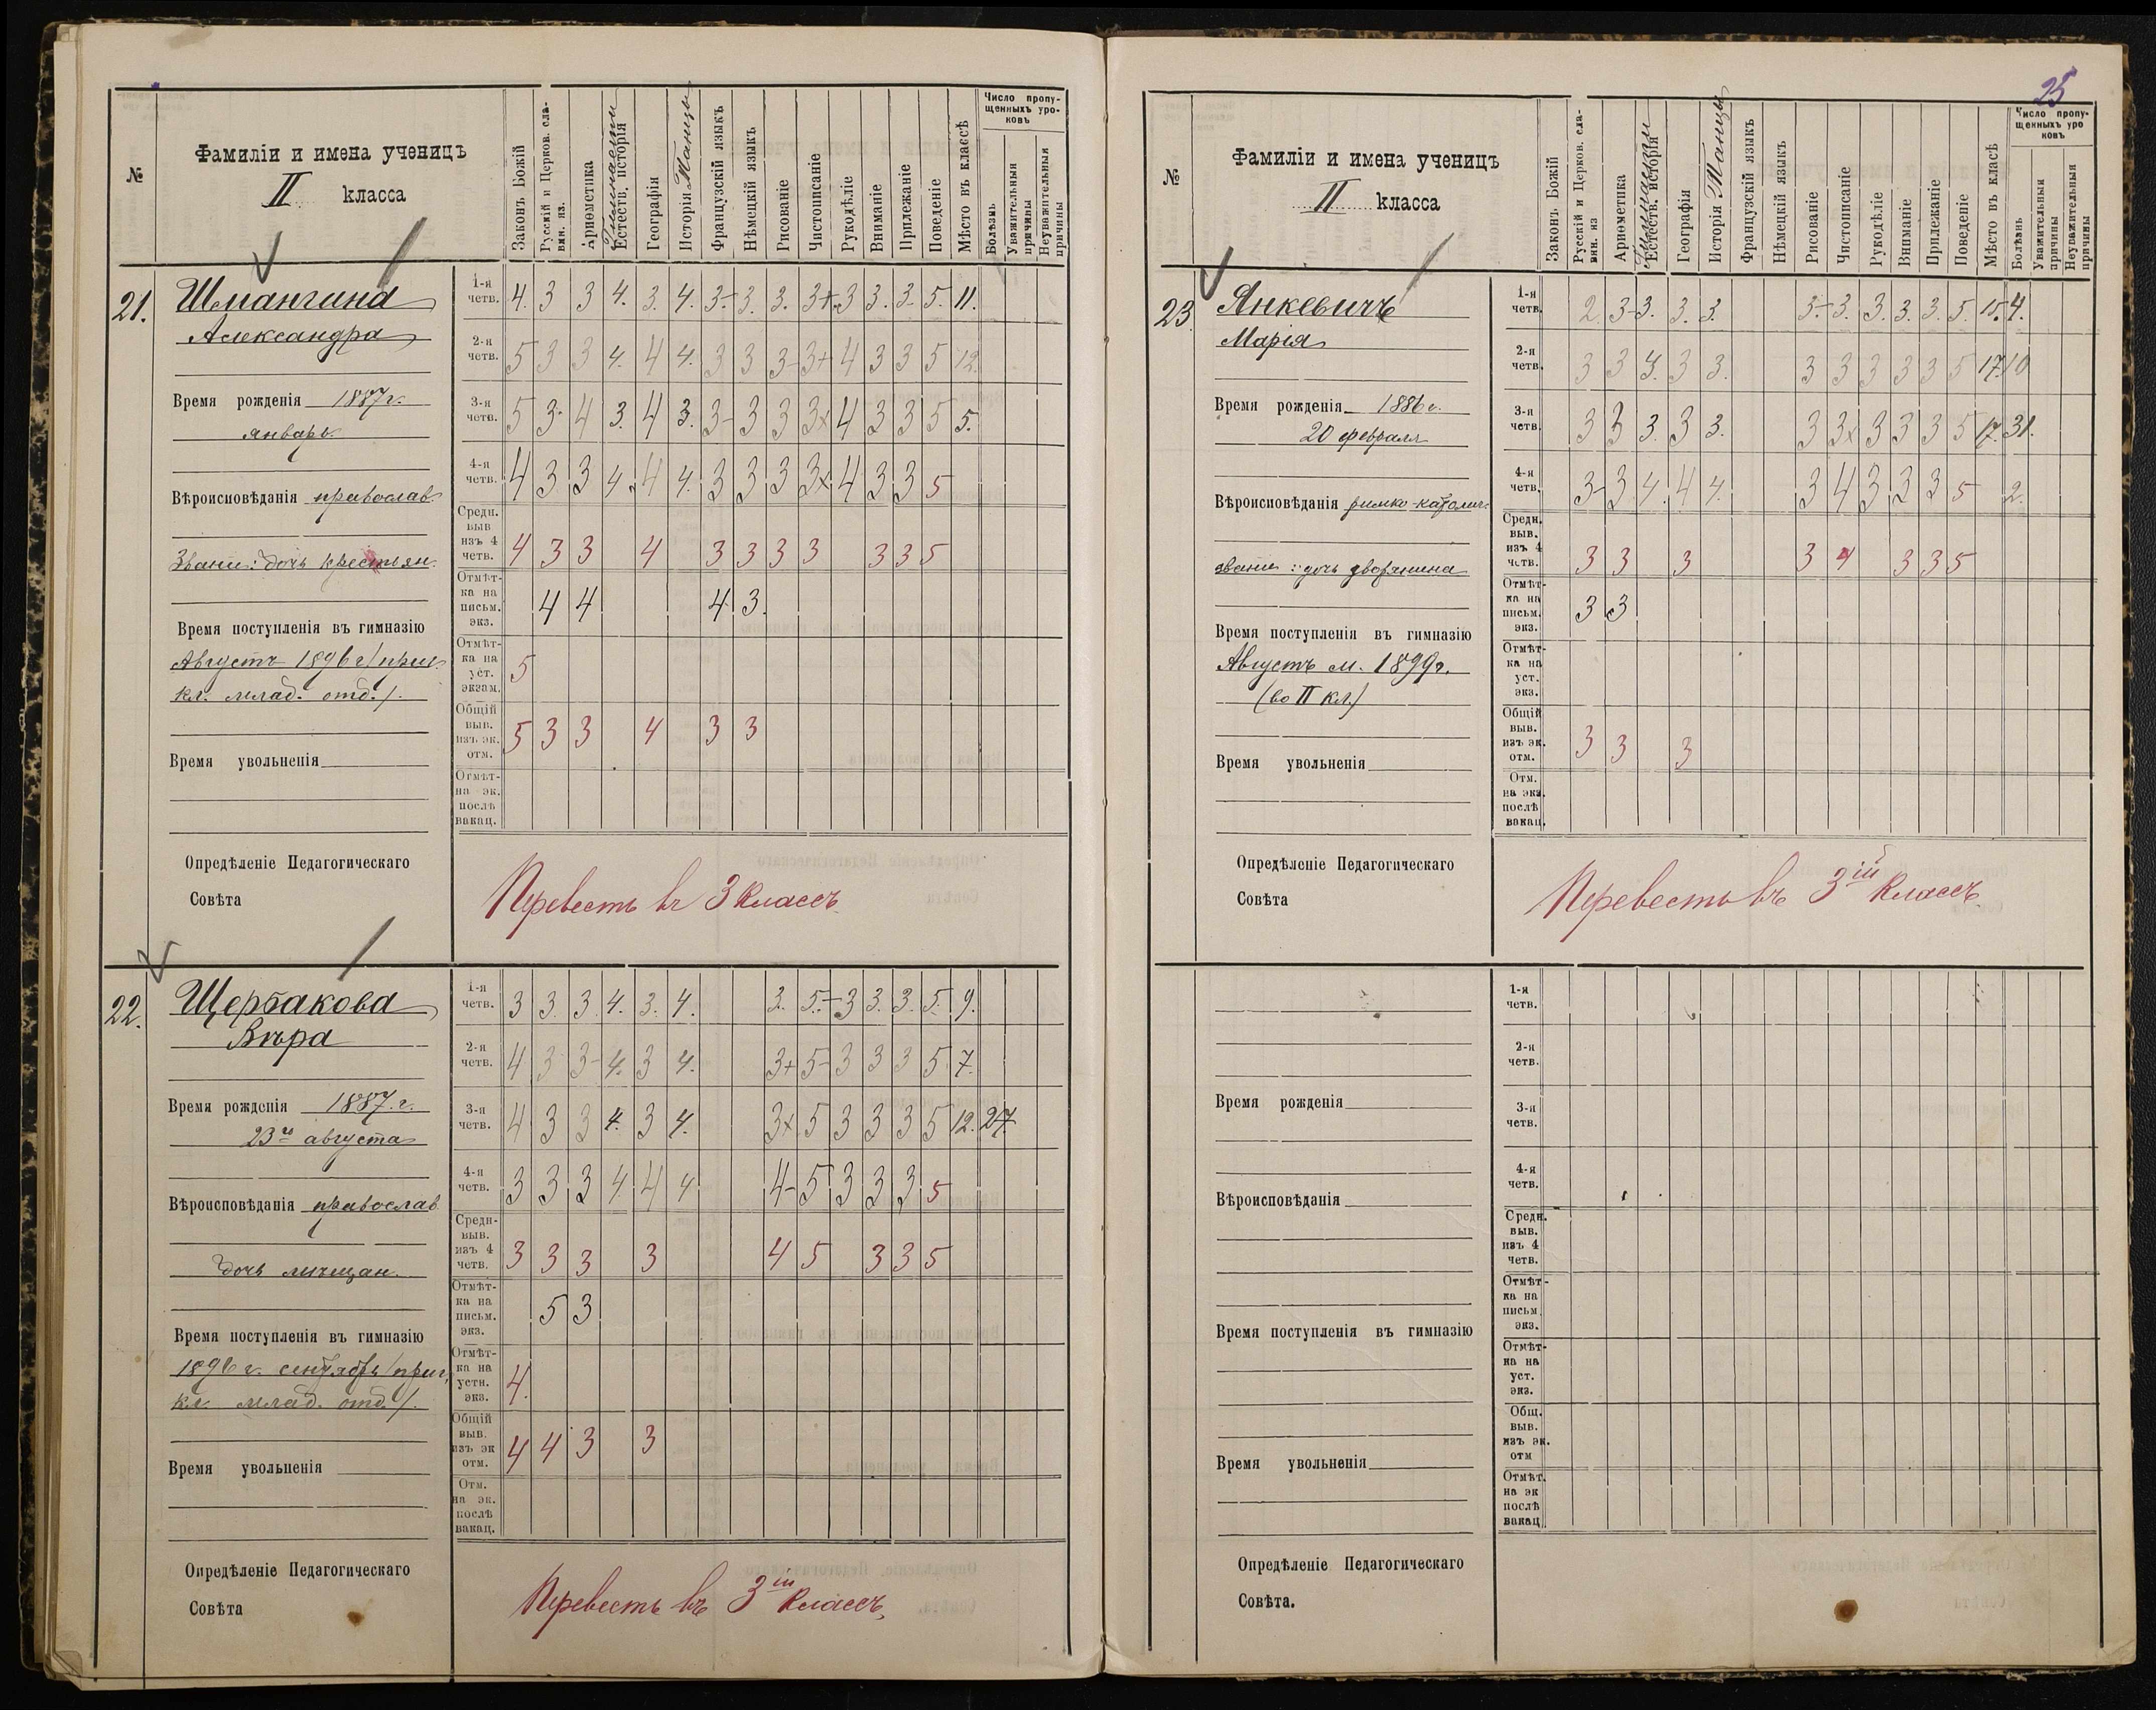 №
Фамиліи и имена ученицъ
II класса
Законъ Божій
Русскій и Церков. сла-
вян. яз.
Ариѳметика
Гимнастика
Естеств. исторія
Географія
Исторія Танцы
Французскій языкъ
Нѣмецкій языкъ
Рисованіе
Чистописаніе
Рукодѣліе
Вниманіе
Прилежаніе
Поведеніе
Мѣсто въ класѣ
Число пропу-
щенныхъ уро-
ковъ
Болѣзнь
Уважительныя
причины
Неуважительныя
причины
21.
Александра
Время рожденія 1887 г.
январь
Вѣроисповѣданія православ
Звание: дочь крестьян.
Время поступленія въ гимназію
Августъ 1896 г/приг.
кл. млад. отд./.
Время увольненія
1-я четв. 4. 3 3 4. 3. 4. 3- 3. 3. 3+ 3 3. 3. 5. 11.
2-я четв. 5 3 3 4. 4 4. 3 3 3- 3+ 4 3 3 5 12.
3-я четв. 5 3- 4 3. 4 3. 3- 3 3 3+ 4 3 3 5 5.
4-я четв. 4 3 3 4. 4 4. 3 3 3 3+ 4 3 3 5
Средн. выв изъ 4 четв. 4 3 3 4 3 3 3 3 3 3 5
Отмѣт-ка на письм. экз. 4 4 4 3.
Отмѣт-ка на уст. экзам. 5
Общій выв. изъ эк. отм. 5 3 3 4 3 3
Отмѣт-на эк. послѣ вакац.
Опредѣленіе Педагогическаго
Совѣта
Перевесть въ 3 классъ.
22.
Щербакова
Вѣра
Время рожденія 1887. г.
23го августа
Вѣроисповѣданія православ
дочь мѣщан.
Время поступленія въ гимназію
1896 г. сентябрь/приг.
кл. млад. отд./.
Время увольненія
1-я четв. 3 3. 3 4. 3. 4. 3. 5- 3 3. 3. 5. 9.
2-я четв. 4 3 3- 4. 3 4. 3+ 5- 3 3 3 5 7.
3-я четв. 4 3 3 4. 3 4. 3+ 5 3 3 3 5 12. 27.
4-я четв. 3 3 3 4. 4 4 4- 5 3 3 3 5
Средн-выв. изъ 4 четв. 3 3 3 3 4 5 3 3 5
Отмѣт-ка на письм. экз. 5 3
Отмѣт-ка на устн. экз. 4.
Общій выв. изъ эк отм. 4 4 3 3
Отм. на эк. послѣ вакац.
Опредѣленіе Педагогическаго
Совѣта
Перевесть въ 3ій классъ.
25
№
Фамиліи и имена ученицъ
II класса
Законъ Божій
Русскій и Церков. сла-
вян. яз
Ариѳметика
Гимнастика
Естеств. исторія
Географія
Исторія Танцы
Французскій языкъ
Нѣмецкій языкъ
Рисованіе
Чистописаніе
Рукодѣліе
Вниманіе
Прилежаніе
Поведеніе
Мѣсто въ класѣ
Число пропу-
щенныхъ уро
ковъ
Болѣзнь
Уважительныя
причины
Неуважительныя
причины
23.
Янкевичъ
Марія
Время рожденія 1886 г.
20 февраля
Вѣроисповѣданія римко-католич.
звание: дочь дворянина
Время поступленія въ гимназію
Августъ м. 1899 г.
(во II кл.)
Время увольненія
1-я четв. 2. 3- 3. 3. 3. 3- 3. 3. 3. 3. 5. 15. 4.
2-я четв. 3 3 3. 3 3. 3 3 3 3 3 5 17. 10
3-я четв. 3 3 3. 3 3. 3 3+ 3 3 3 5 17. 31.
4-я четв. 3- 3 4. 4 4. 3 4 3 3 3 5 2.
Средн. выв. изъ 4 четв. 3 3 3 3 4 3 3 5
Отмѣт-ка на письм. экз. 3 3
Отмѣт-ка на уст. экз.
Общій выв. изъ эк. отм. 3 3 3
Отм. на экз. послѣ вакац.
Опредѣленіе Педагогическаго
Совѣта
Перевесть въ 3ій классъ.
Время рожденія
Вѣроисповѣданія
Время поступленія въ гимназію
Время увольненія
1-я четв.
2-я четв.
3-я четв.
4-я четв.
Средн. выв. изъ 4 четв.
Отмѣт-ка на письм. экз.
Отмѣт-ка на уст. экз.
Общ. выв. изъ эк. отм
Отмѣт. на эк послѣ вакац
Опредѣленіе Педагогическаго
Совѣта.